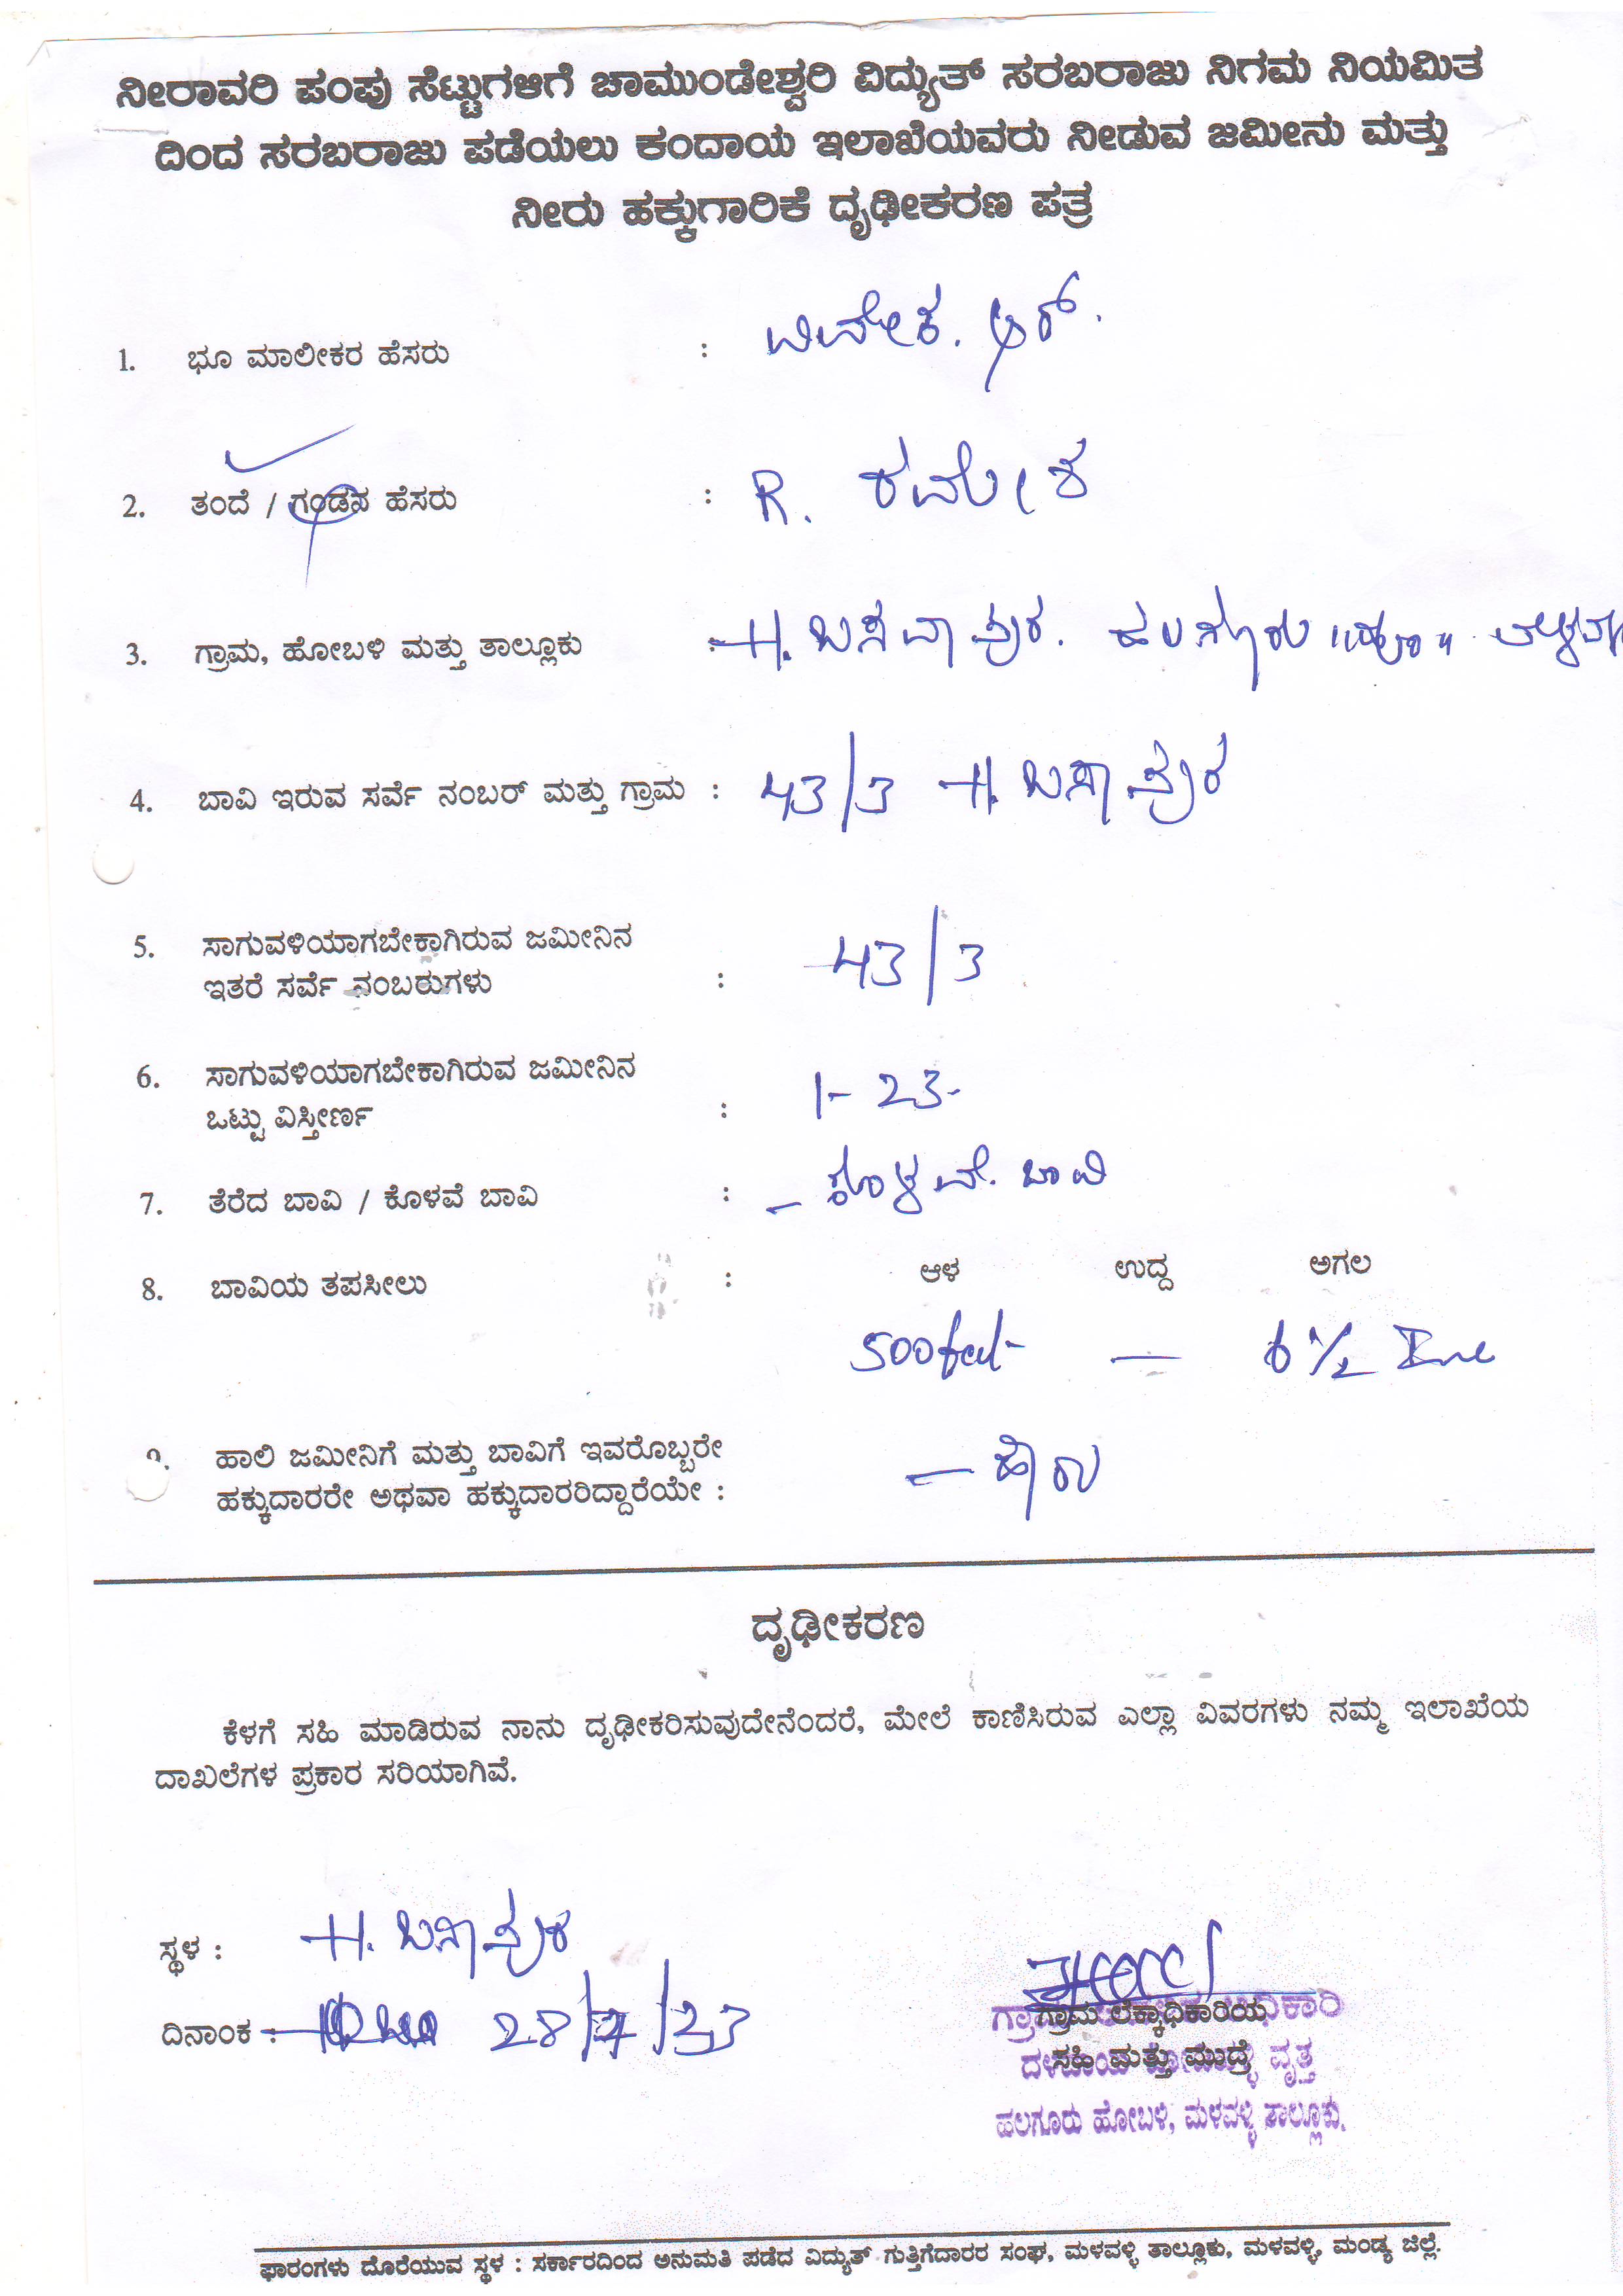 ನೀರಾವರಿ ಪಂಪು ಸೆಟ್ಟುಗಳಿಗೆ ಚಾಮುಂಡೇಶ್ವರಿ ವಿದ್ಯುತ್ ಸರಬರಾಜು ನಿಗಮ ನಿಯಮಿತ
ದಿಂದ ಸರಬರಾಜು ಪಡೆಯಲು ಕಂದಾಯ ಇಲಾಖೆಯವರು ನೀಡುವ ಜಮೀನು ಮತ್ತು
ನೀರು ಹಕ್ಕುಗಾರಿಕೆ ದೃಢೀಕರಣ ಪತ್ರ
1. ಭೂ ಮಾಲೀಕರ ಹೆಸರು : ವಿವೇಕ. ಆರ್.
2. ತಂದೆ / ಗಂಡನ ಹೆಸರು : R. ರಮೇಶ
3. ಗ್ರಾಮ, ಹೋಬಳಿ ಮತ್ತು ತಾಲ್ಲೂಕು : H. ಬಸವಾಪುರ. ಹಲಗೂರು
4. ಬಾವಿ ಇರುವ ಸರ್ವೆ ನಂಬರ್ ಮತ್ತು ಗ್ರಾಮ : 43/3 H. ಬಸಾಪುರ
5. ಸಾಗುವಳಿಯಾಗಬೇಕಾಗಿರುವ ಜಮೀನಿನ
ಇತರೆ ಸರ್ವೆ ನಂಬರುಗಳು : 43/3
6. ಸಾಗುವಳಿಯಾಗಬೇಕಾಗಿರುವ ಜಮೀನಿನ
ಒಟ್ಟು ವಿಸ್ತೀರ್ಣ : 1-23-
7. ತೆರೆದ ಬಾವಿ / ಕೊಳವೆ ಬಾವಿ : – ಕೊಳವೆ. ಬಾವಿ
8. ಬಾವಿಯ ತಪಸೀಲು : ಆಳ ಉದ್ದ ಅಗಲ
500 feet – 6 ½
9. ಹಾಲಿ ಜಮೀನಿಗೆ ಮತ್ತು ಬಾವಿಗೆ ಇವರೊಬ್ಬರೇ
ಹಕ್ಕುದಾರರೇ ಅಥವಾ ಹಕ್ಕುದಾರರಿದ್ದಾರೆಯೇ : – ಹೌದು
ದೃಢೀಕರಣ
ಕೆಳಗೆ ಸಹಿ ಮಾಡಿರುವ ನಾನು ದೃಢೀಕರಿಸುವುದೇನೆಂದರೆ, ಮೇಲೆ ಕಾಣಿಸಿರುವ ಎಲ್ಲಾ ವಿವರಗಳು ನಮ್ಮ ಇಲಾಖೆಯ
ದಾಖಲೆಗಳ ಪ್ರಕಾರ ಸರಿಯಾಗಿವೆ.
ಸ್ಥಳ : H. ಬಸಾಪುರ
ದಿನಾಂಕ : 28/7/23
ಗ್ರಾಮ ಲೆಕ್ಕಾಧಿಕಾರಿಯ
ಸಹಿ ಮತ್ತು ಮುದ್ರೆ
ವೃತ್ತ
ಹಲಗೂರು ಹೋಬಳಿ, ಮಳವಳ್ಳಿ ತಾಲ್ಲೂಕು.
ಫಾರಂಗಳು ದೊರೆಯುವ ಸ್ಥಳ : ಸರ್ಕಾರದಿಂದ ಅನುಮತಿ ಪಡೆದ ವಿದ್ಯುತ್ ಗುತ್ತಿಗೆದಾರರ ಸಂಘ, ಮಳವಳ್ಳಿ ತಾಲ್ಲೂಕು, ಮಳವಳ್ಳಿ, ಮಂಡ್ಯ ಜಿಲ್ಲೆ.